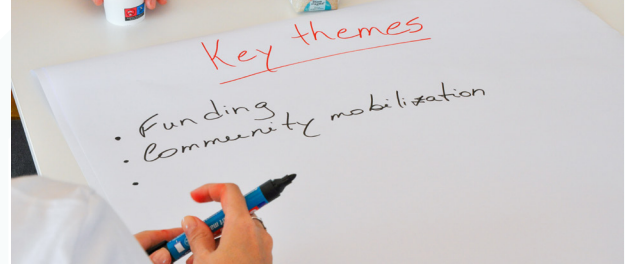 Key themes
• Funding
• Community mobilization
•